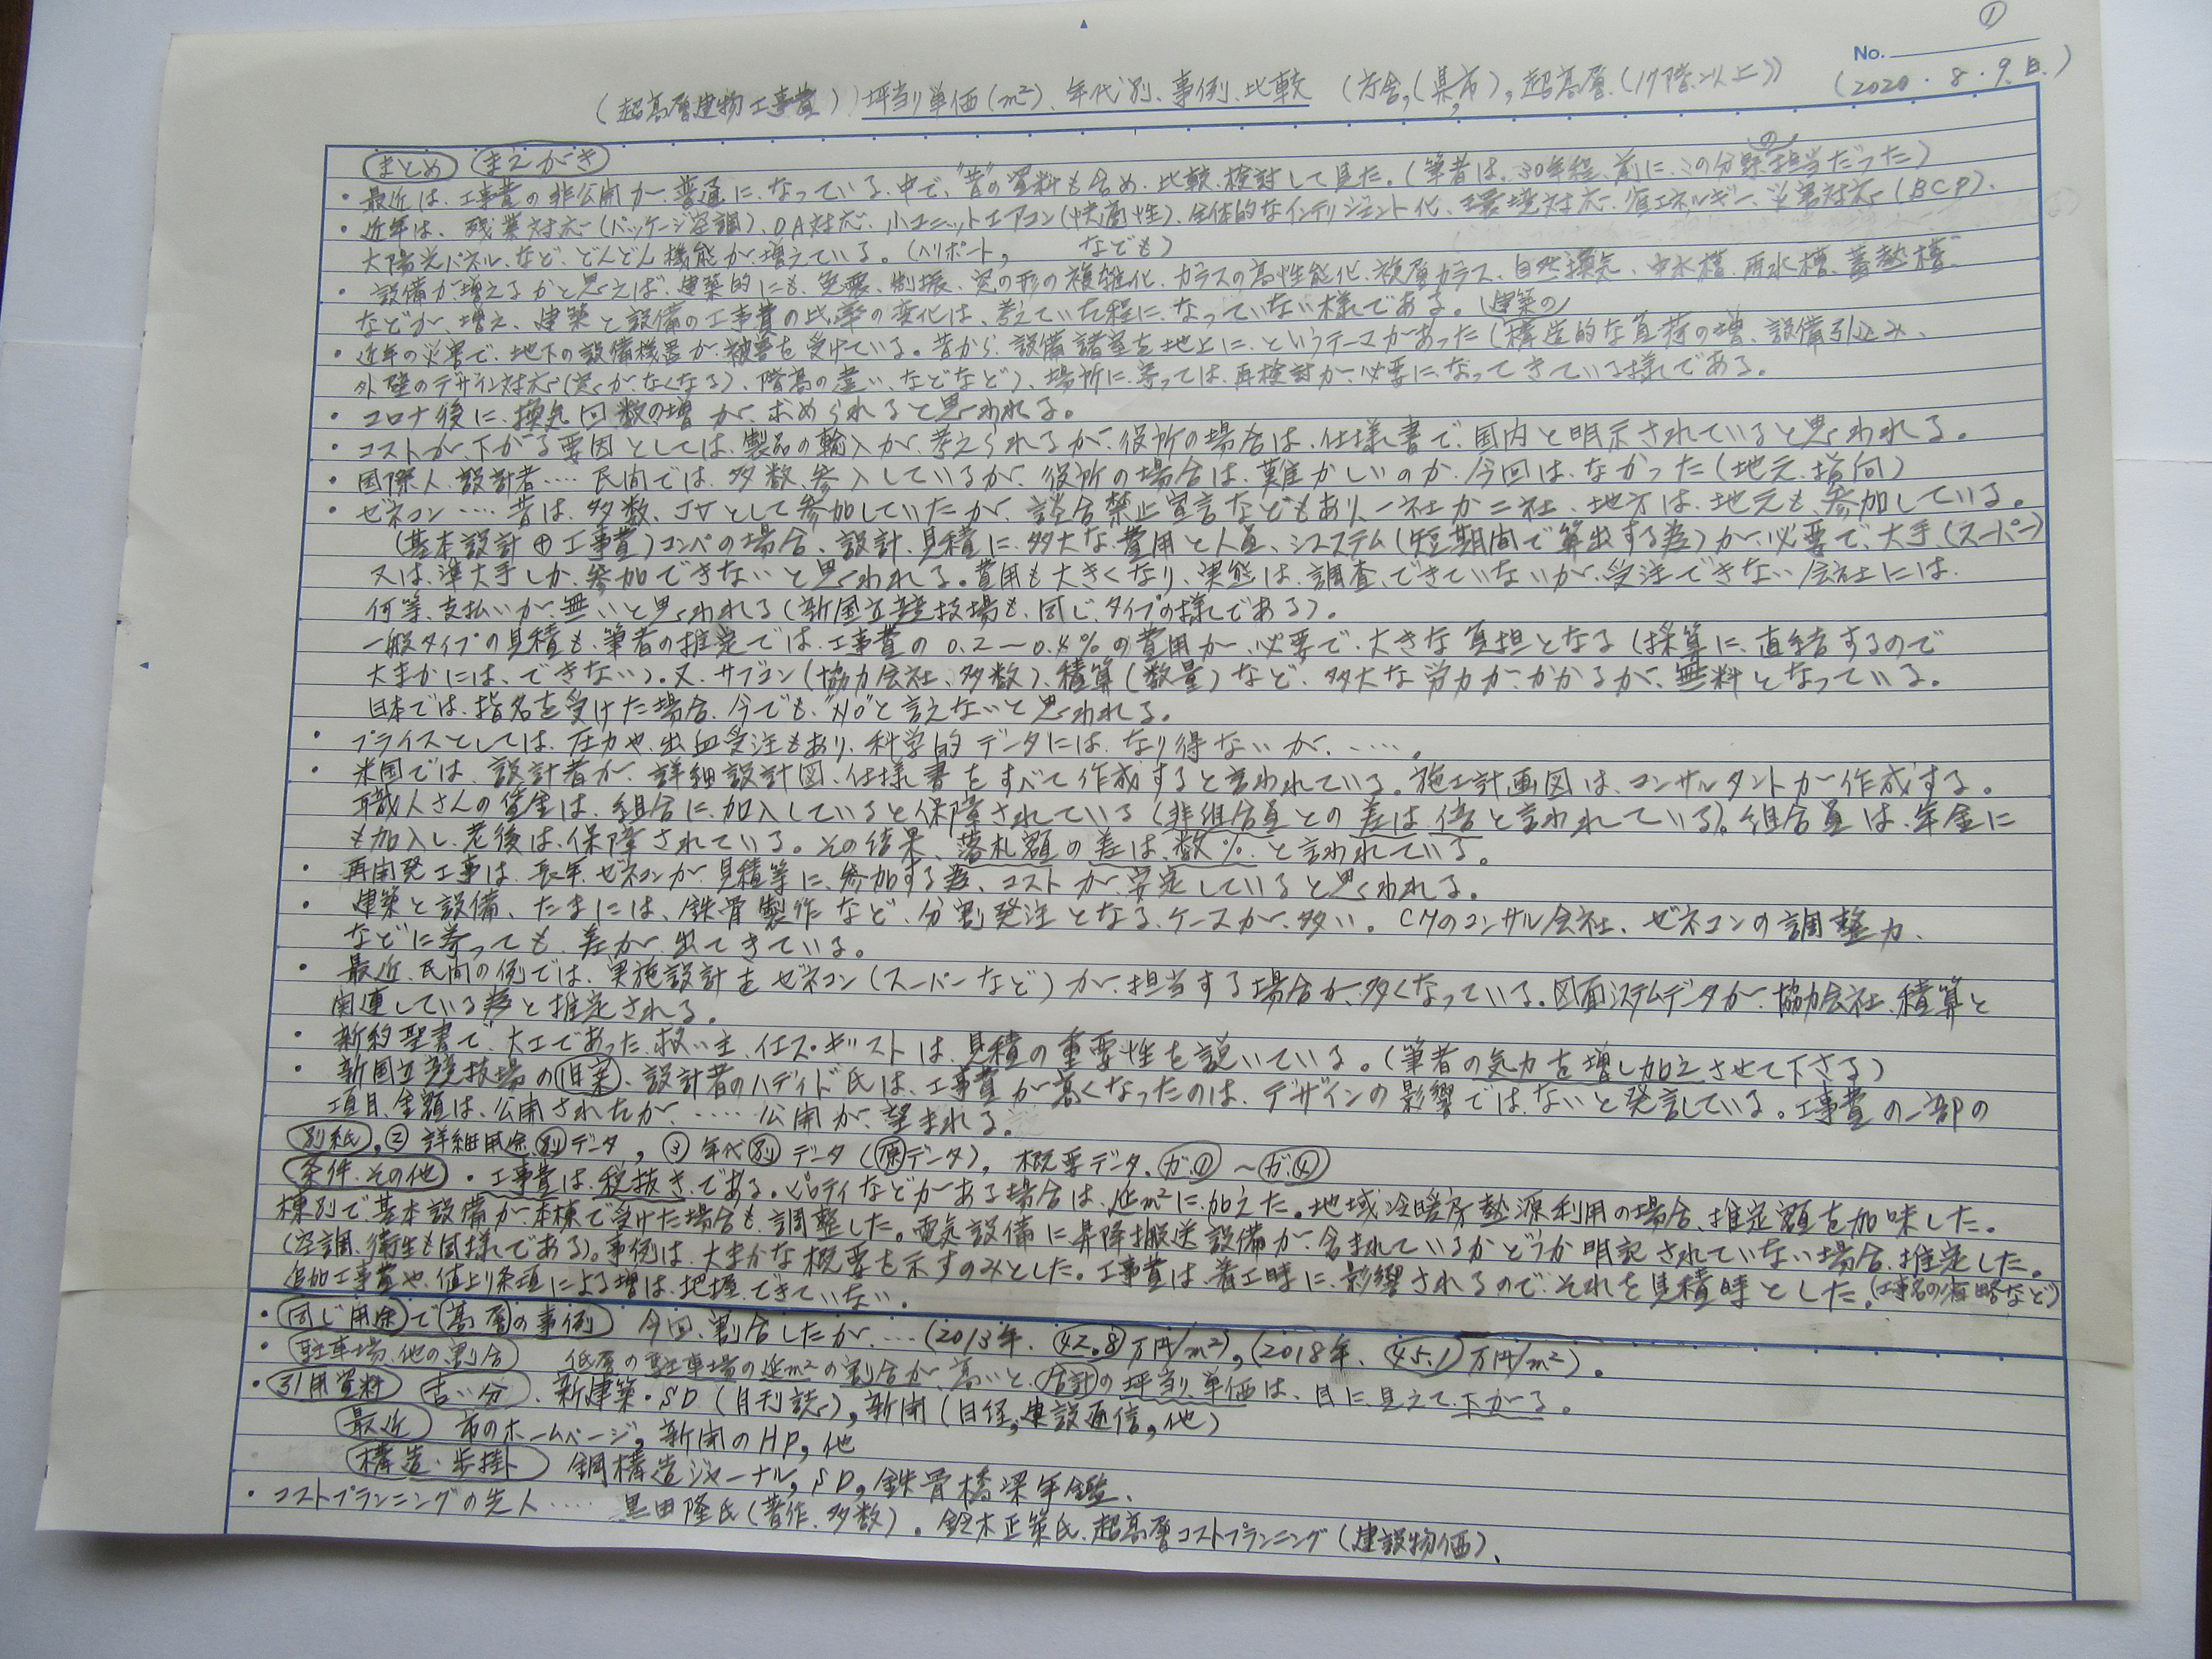 ①
No.
(超高層建物工事費) 坪当り単価(m²)、年代別、事例、比較 (庁舎,(県,市), 超高層.(17階以上)) (2020.8.9.日.)
まとめ まえがき
・最近は、工事費の非公開が、普通に、なっている、中で、"昔"の資料も含め、比較、検討して見た。(筆者は、30年程、前に、この分野の担当だった)
・近年は、残業対応(パッケージ空調)、OA対応、小ユニットエアコン(快適性)、全体的なインテリジェント化、環境対応、省エネルギー、災害対応(BCP)、
太陽光パネル、など、どんどん機能が、増えている。(ヘリポート, なども)
・設備が増えるかと思えば、建築的にも、免震、制振、窓の形の複雑化、ガラスの高性能化、複層ガラス、自然換気、中水槽、雨水槽、蓄熱槽
などが、増え、建築と設備の工事費の比率の変化は、考えていた程に、なっていない様である。(建築の)
・近年の災害で、地下の設備機器が、被害を受けている。昔から、設備諸室を地上に、というテーマがあった(構造的な負荷の増、設備引込み、
外壁のデザイン対応(窓が、なくなる)、階高の違い、などなど)、場所に寄っては、再検討が、必要に、なってきている様である。
・コロナ後に、換気回数の増が、求められると思われる。
・コストが、下がる要因としては、製品の輸入が、考えられるが、役所の場合は、仕様書で、国内と明示されていると思われる。
・国際人、設計者‥‥民間では、多数、参入しているが、役所の場合は、難かしいのか、今回は、なかった(地元、指向)
・ゼネコン‥‥昔は、多数、JVとして参加していたが、談合禁止宣言などもあり、一社か二社、地方は、地元も、参加している。
(基本設計⊕工事費)コンペの場合、設計、見積に、多大な、費用と人員、システム(短期間で算出する為)が、必要で、大手、(スーパー)
又は、準大手しか、参加できないと思われる。費用も大きくなり、実態は、調査、できていないが、受注できない会社には、
何等、支払いが無いと思われる(新国立競技場も、同じ、タイプの様である)。
一般タイプの見積も、筆者の推定では、工事費の 0.2〜0.4% の費用が、必要で、大きな負担となる(採算に、直結するので
大まかには、できない)。又、サブコン(協力会社、多数)、積算(数量)など、多大な労力が、かかるが、無料となっている。
日本では、指名を受けた場合、今でも、"No"と言えないと思われる。
・プライスとしては、圧力や、出血受注もあり、科学的データには、なり得ないが、‥‥。
・米国では、設計者が、詳細設計図、仕様書をすべて作成すると言われている。施工計画図は、コンサルタントが作成する。
職人さんの賃金は、組合に、加入していると保障されている(非組合員との差は、倍と言われている)。組合員は、年金に
も加入し、老後は、保障されている。その結果、落札額の差は、数%、と言われている。
・再開発工事は、長年、ゼネコンが、見積等に、参加する為、コストが、安定していると思われる。
・建築と設備、たまには、鉄骨製作など、分割発注となる、ケースが、多い。CMのコンサル会社、ゼネコンの調整力、
などに寄っても、差が、出てきている。
・最近、民間の例では、実施設計をゼネコン(スーパーなど)が、担当する場合が、多くなっている。図面システムデータが、協力会社、積算と
関連している為と推定される。
・新約聖書で、大工であった、救い主、イエス・キリストは、見積の重要性を説いている。(筆者の気力を増し加えさせて下さる)
・新国立競技場の旧案、設計者のハディド氏は、工事費が高くなったのは、デザインの影響ではないと発言している。工事費の一部の
項目、金額は、公開されたが、‥‥公開が、望まれる。
別紙, ② 詳細用途別データ, ③ 年代別データ(原データ), 概要データ、が① 〜 が④
条件、その他 ・工事費は、税抜き、である。ピロティなどがある場合は、延m²に、加えた。地域冷暖房熱源利用の場合、推定額を加味した。
棟別で、基本設備が、本棟で受けた場合も、調整した。電気設備に昇降搬送設備が、含まれているかどうか明記されていない場合、推定した。
(空調、衛生も同様である)。事例は、大まかな概要を示すのみとした。工事費は、着工時に、影響されるので、それを見積時とした。(工事名の省略など)
追加工事費や、値上り条項による増は、把握、できていない。
・同じ用途で高層の事例 今回、割合したが、‥‥(2013年、42.8万円/m²), (2018年、45.1万円/m²)。
・駐車場、他の割合 低層の駐車場の延m²の割合が、高いと、合計の坪当り単価は、目に見えて、下がる。
・引用資料 古い分、新建築・SD(月刊誌), 新聞(日経, 建設通信, 他)
最近 市のホームページ, 新聞のHP, 他
構造・歩掛 鋼構造ジャーナル, SD, 鉄骨橋梁年鑑、
・コストプランニングの先人‥‥ 黒田隆氏(著作、多数)。鈴木正策氏、超高層コストプランニング(建設物価)、